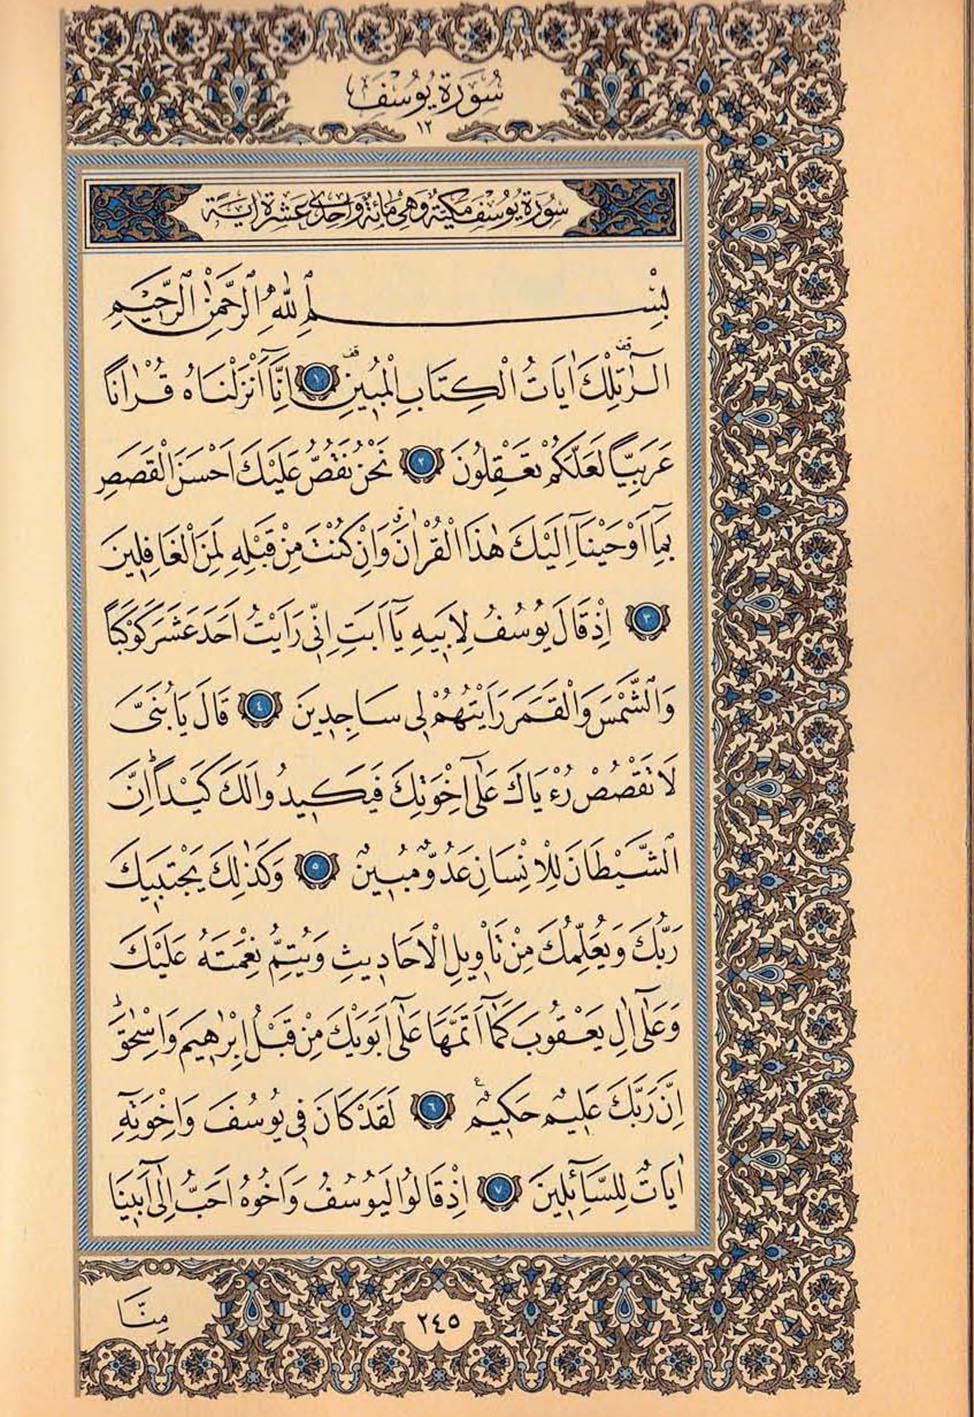 سُورَةُ يُوسُفَ
١٢
سُورَةُ يُوسُفَ مَكِّيَّةٌ وَهِيَ مِائَةٌ وَاِحْدٰى عَشْرَةَ اٰيَةً
بِسْمِ اللّٰهِ الرَّحْمٰنِ الرَّحِيمِ
الٓرٰ۠ تِلْكَ اٰيَاتُ الْكِتَابِ الْمُب۪ينِ۠ ﴿١﴾ اِنَّٓا اَنْزَلْنَاهُ قُرْاٰنًا
عَرَبِيًّا لَعَلَّكُمْ تَعْقِلُونَ ﴿٢﴾ نَحْنُ نَقُصُّ عَلَيْكَ اَحْسَنَ الْقَصَصِ
بِمَٓا اَوْحَيْنَٓا اِلَيْكَ هٰذَا الْقُرْاٰنَۗ وَاِنْ كُنْتَ مِنْ قَبْلِه۪ لَمِنَ الْغَافِل۪ينَ
﴿٣﴾ اِذْ قَالَ يُوسُفُ لِاَب۪يهِ يَٓا اَبَتِ اِنّ۪ي رَاَيْتُ اَحَدَ عَشَرَ كَوْكَبًا
وَالشَّمْسَ وَالْقَمَرَ رَاَيْتُهُمْ ل۪ي سَاجِد۪ينَ ﴿٤﴾ قَالَ يَا بُنَيَّ
لَا تَقْصُصْ رُءْيَاكَ عَلٰٓى اِخْوَتِكَ فَيَك۪يدُوا لَكَ كَيْدًاۜ اِنَّ
الشَّيْطَانَ لِلْاِنْسَانِ عَدُوٌّ مُب۪ينٌ ﴿٥﴾ وَكَذٰلِكَ يَجْتَب۪يكَ
رَبُّكَ وَيُعَلِّمُكَ مِنْ تَأْو۪يلِ الْاَحَاد۪يثِ وَيُتِمُّ نِعْمَتَهُ عَلَيْكَ
وَعَلٰٓى اٰلِ يَعْقُوبَ كَمَٓا اَتَمَّهَا عَلٰٓى اَبَوَيْكَ مِنْ قَبْلُ اِبْرٰه۪يمَ وَاِسْحٰقَۜ
اِنَّ رَبَّكَ عَل۪يمٌ حَك۪يمٌ۟ ﴿٦﴾ لَقَدْ كَانَ ف۪ي يُوسُفَ وَاِخْوَتِه۪ٓ
اٰيَاتٌ لِلسَّٓائِل۪ينَ ﴿٧﴾ اِذْ قَالُوا لَيُوسُفُ وَاَخُوهُ اَحَبُّ اِلٰٓى اَب۪ينَا
٢٤٥
مِنَّا